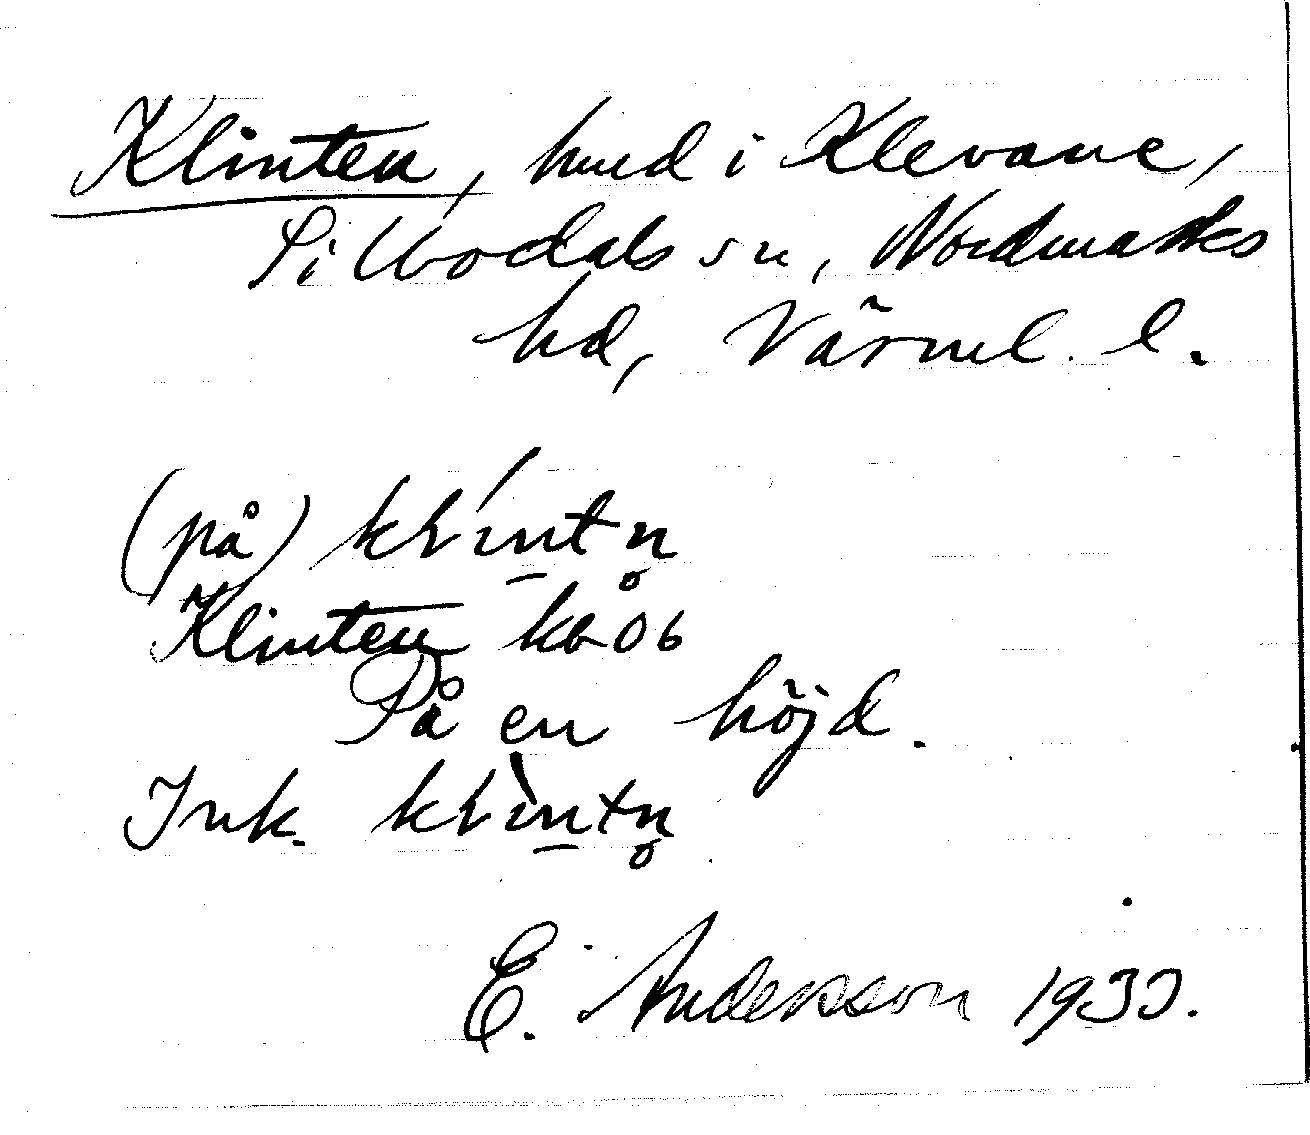 Klinten, hmd i Klevane,
Sillbodals sn, Nordmarks
hd, Värml. l.
(på) klíntn̥
Klinten kb 06
På en höjd.
Ink. klìntn̥
E. Andersson 1930.